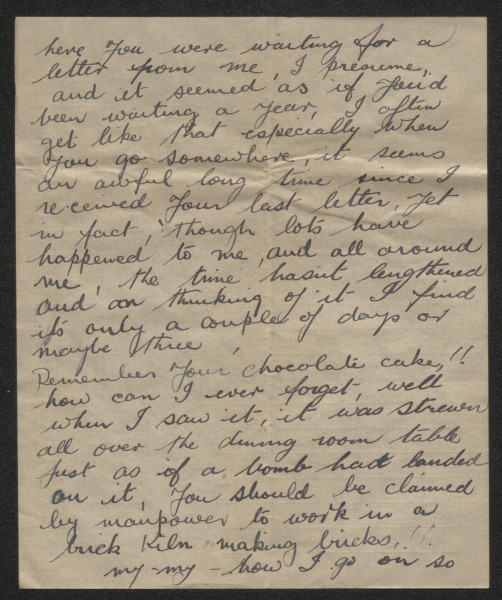 here you were waiting for a
letter from me, I presume,
and it seemed as if you'd
been waiting a year, I often
get like that especially when
you go somewhere, it seems
an awful long time since I
received your last letter, yet
in fact, though lots have
happened to me, and all around
me, the time hasn't lengthened
and on thinking of it I find
it's only a couple of days or
maybe three,
Remember your chocolate cake,!!
how can I ever forget, well
when I saw it, it was strewn
all over the dining room table
just as if a bomb had landed
on it, you should be claimed
by manpower to work in a
brick kiln making bricks,!!
my-my - how I go on so